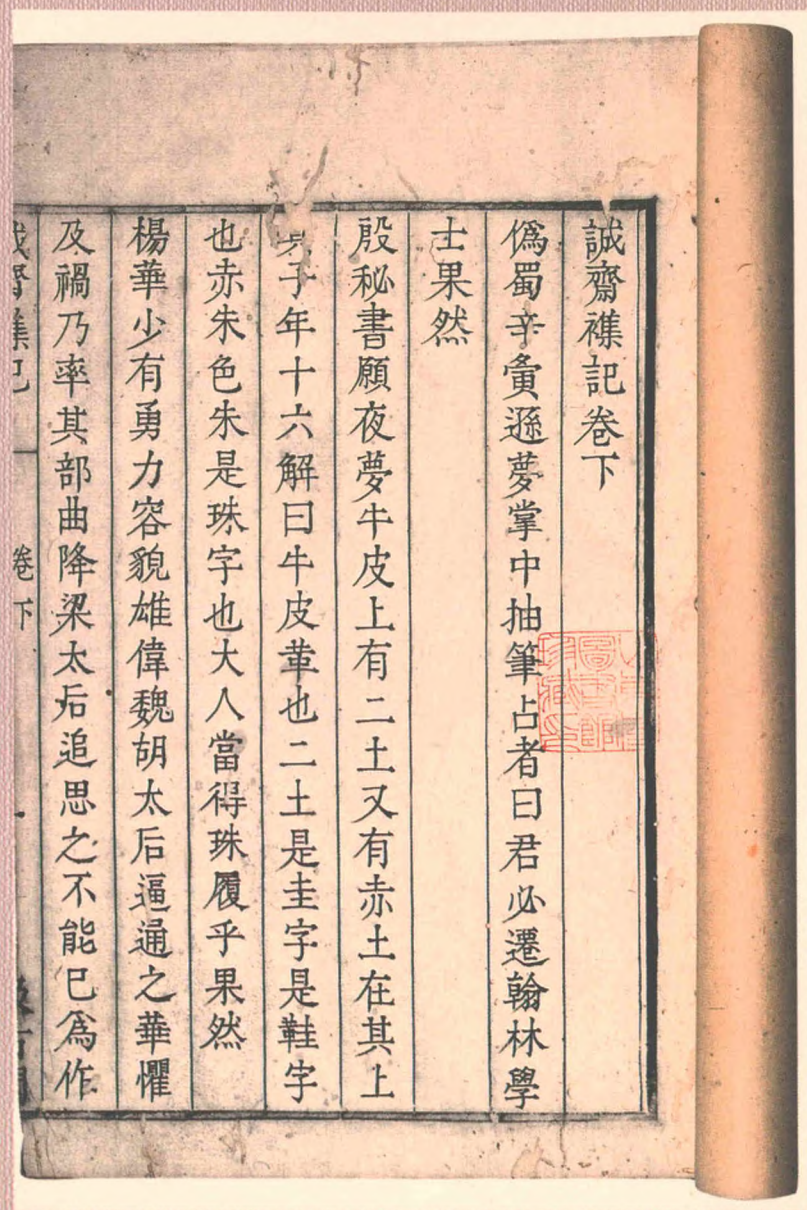 誠齋襍記卷下
偽蜀辛夤遜夢掌中抽筆占者曰君必遷翰林學
士果然
殷秘書願夜夢牛皮上有二土又有赤土在其上
其子年十六解曰牛皮革也二土是圭字是鞋字
也赤朱色朱是珠字也大人當得珠履乎果然
楊華少有勇力容貌雄偉魏胡太后逼通之華懼
及禍乃率其部曲降梁太后追思之不能已為作
誠齋襍記
卷下